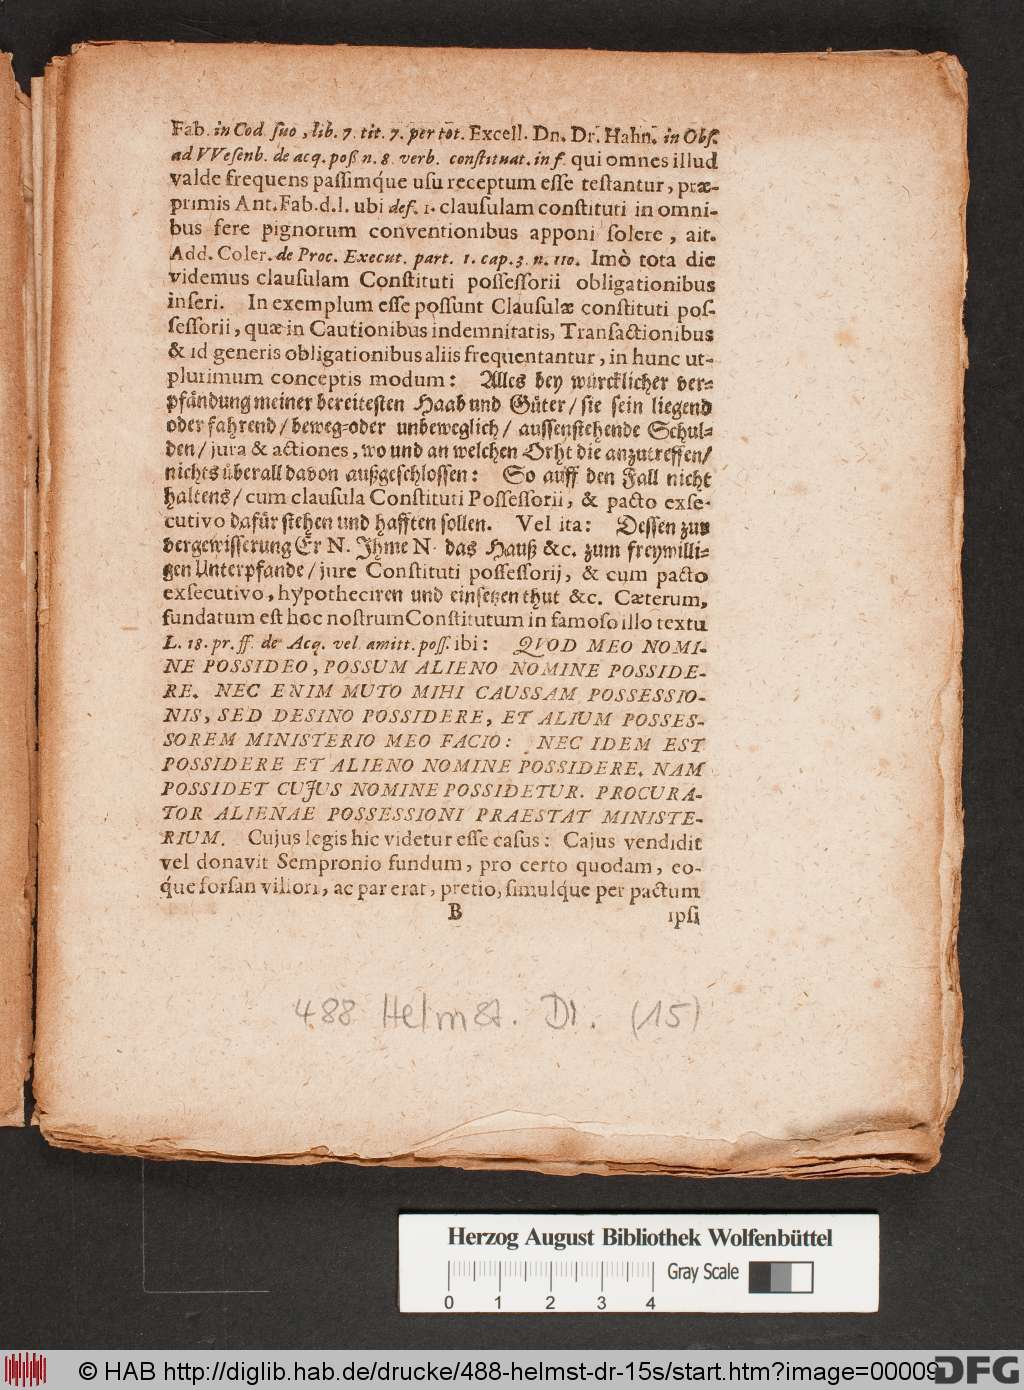 Fab. in Cod. ſuo, lib. 7. tit. 7. per tot. Excell. Dn. Dr. Hahn. in Obſ.
ad VVeſenb. de acq. poß n. 8. verb. conſtituat. in f. qui omnes illud
valde frequens paſſimq́ue uſu receptum eſſe teſtantur, præ-
primis Ant. Fab. d. l. ubi def. 1. clauſulam conſtituti in omni-
bus fere pignorum conventionibus apponi ſolere, ait.
Add. Coler. de Proc. Execut. part. 1. cap. 3. n. 110. Imò tota die
videmus clauſulam Conſtituti poſſeſſorii obligationibus
inſeri. In exemplum eſſe poſſunt Clauſulæ conſtituti poſ-
ſeſſorii, quæ in Cautionibus indemnitatis, Transactionibus
& id generis obligationibus aliis frequentantur, in hunc ut-
plurimum conceptis modum: Alles bey würcklicher ver-
pfändung meiner bereiteſten Haab und Güter/ ſie ſein liegend
oder fahrend/ beweg-oder unbeweglich/ auſſenſtehende Schul-
den/ jura & actiones, wo und an welchen Orht die anzutreffen/
nichts überall davon außgeſchloſſen: So auff den Fall nicht
haltens/ cum clauſula Conſtituti Poſſeſſorii, & pacto exſe-
cutivo dafür ſtehen und hafften ſollen. Vel ita: Deſſen zur
vergewiſſerung Er N. Ihme N. das Hauß &c. zum freywilli-
gen Unterpfande/ jure Conſtituti poſſeſſorij, & cum pacto
exſecutivo, hypotheciren und einſetzen thut &c. Cæterum,
fundatum eſt hoc noſtrum Conſtitutum in famoſo illo textu
L. 18. pr. ff. de Acq. vel amitt. poſſ. ibi: QVOD MEO NOMI-
NE POSSIDEO, POSSUM ALIENO NOMINE POSSIDE-
RE. NEC ENIM MUTO MIHI CAUSSAM POSSESSIO-
NIS, SED DESINO POSSIDERE, ET ALIUM POSSES-
SOREM MINISTERIO MEO FACIO: NEC IDEM EST
POSSIDERE ET ALIENO NOMINE POSSIDERE. NAM
POSSIDET CUJUS NOMINE POSSIDETUR. PROCURA-
TOR ALIENAE POSSESSIONI PRAESTAT MINISTE-
RIUM. Cujus legis hic videtur eſſe caſus: Cajus vendidit
vel donavit Sempronio fundum, pro certo quodam, eo-
q́ue forſan viliori, ac par erat, pretio, ſimulq́ue per pactum
B ipſi
488 Helmst. Dr. (15)
Herzog August Bibliothek Wolfenbüttel
Gray Scale
0 1 2 3 4
© HAB http://diglib.hab.de/drucke/488-helmst-dr-15s/start.htm?image=00009
DFG